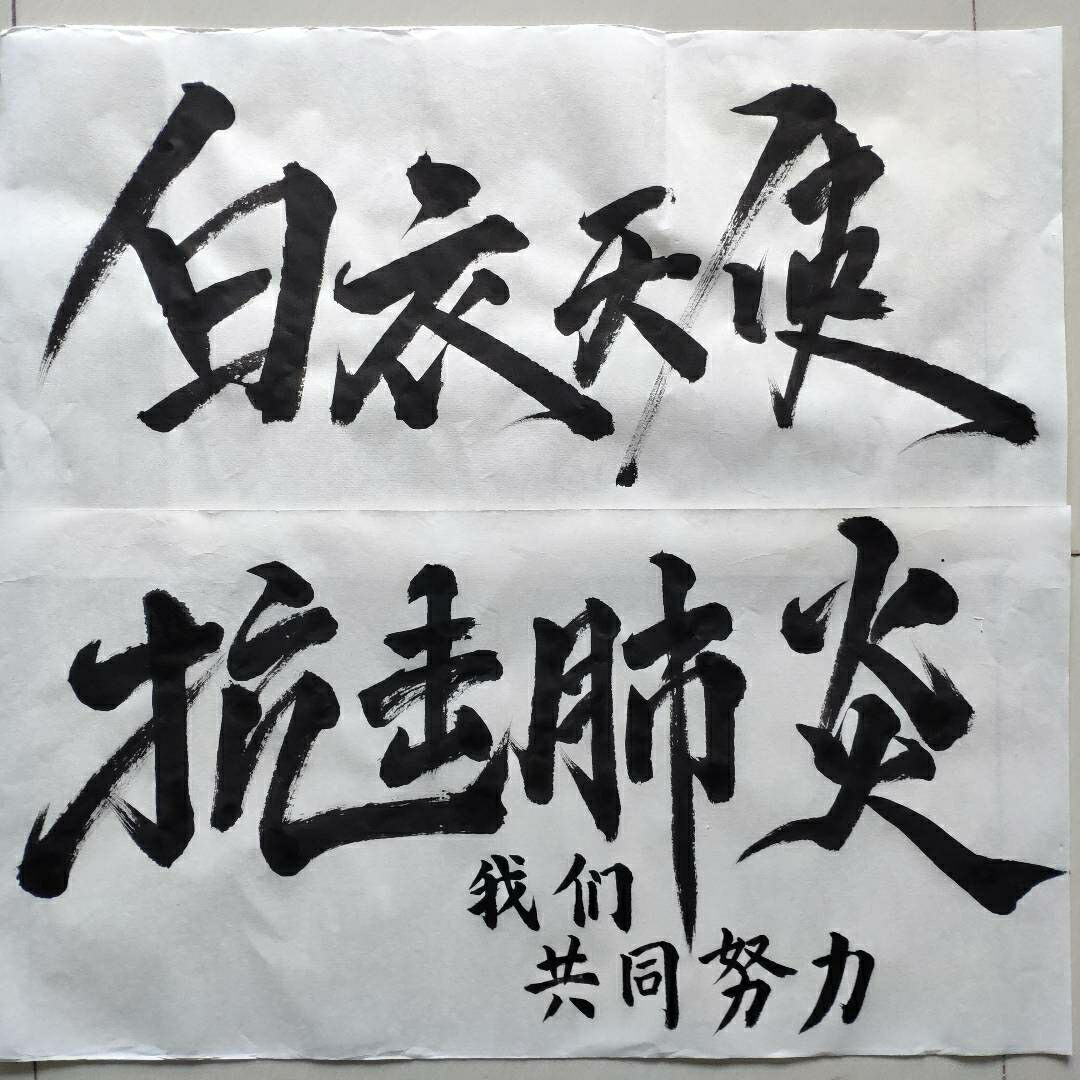 白衣天使
抗击肺炎
我们
共同努力